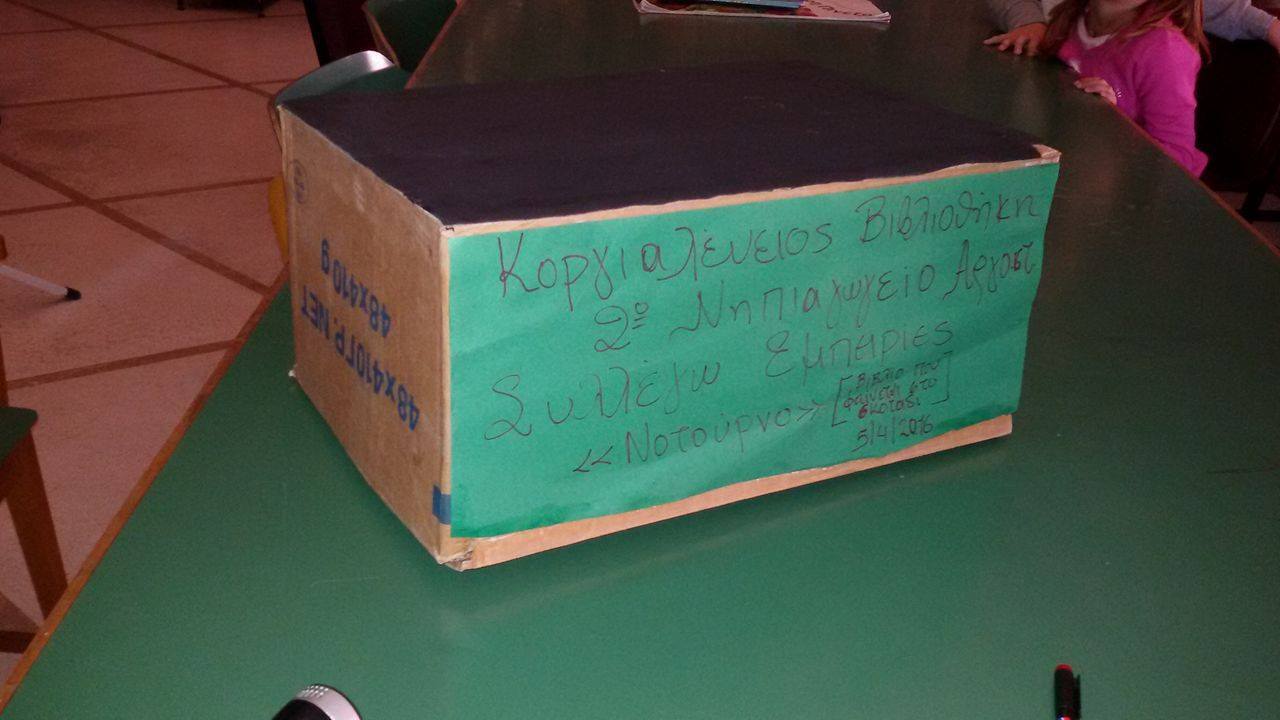 Κοργιαλένειος Βιβλιοθήκη
2ο Νηπιαγωγείο Αργοστ.
Συλλέγω Εμπειρίες
«Νοτούρνο» [Βιβλίο που
φαίνεται στο
σκοτάδι]
5/4/2016
48x410ΓΡ. ΝΕΤ
48x410 g